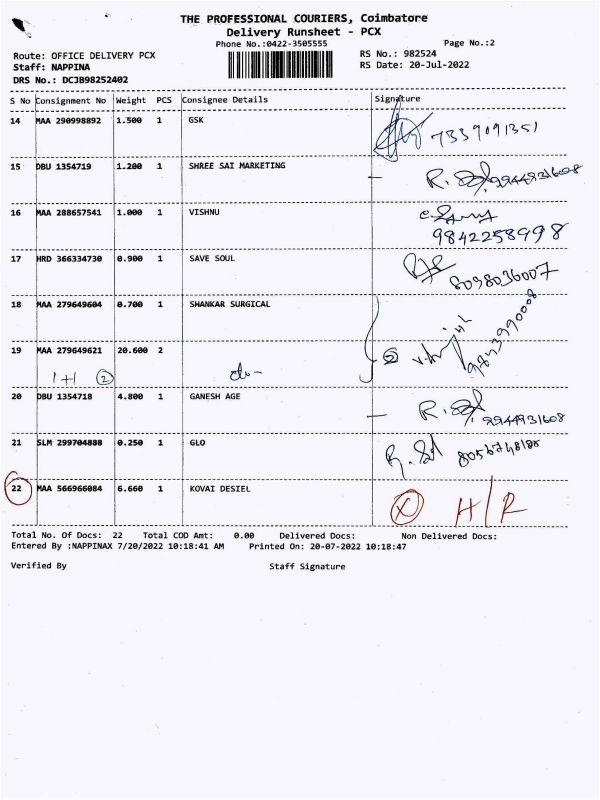 THE PROFESSIONAL COURIERS, Coimbatore
Delivery Runsheet - PCX
Phone No.:0422-3505555
Page No.:2
Route: OFFICE DELIVERY PCX
RS No.: 982524
Staff: NAPPINA
RS Date: 20-Jul-2022
DRS No.: DCJB98252402
S No Consignment No Weight PCS Consignee Details Signature
14 MAA 290998892 1.500 1 GSK 7339091351
15 DBU 1354719 1.200 1 SHREE SAI MARKETING R. 9944931608
16 MAA 288657541 1.000 1 VISHNU
9842258998
17 HRD 366334730 0.900 1 SAVE SOUL
8098036007
18 MAA 279649604 0.700 1 SHANKAR SURGICAL
19 MAA 279649621 20.600 2 9843990008
1+1 2 do-
20 DBU 1354718 4.800 1 GANESH AGE R.
9944931608
21 SLM 299704888 0.250 1 GLO R.
22 MAA 566966084 6.660 1 KOVAI DESIEL X H/R
Total No. Of Docs: 22 Total COD Amt: 0.00 Delivered Docs: Non Delivered Docs:
Entered By :NAPPINAX 7/20/2022 10:18:41 AM Printed On: 20-07-2022 10:18:47
Verified By Staff Signature